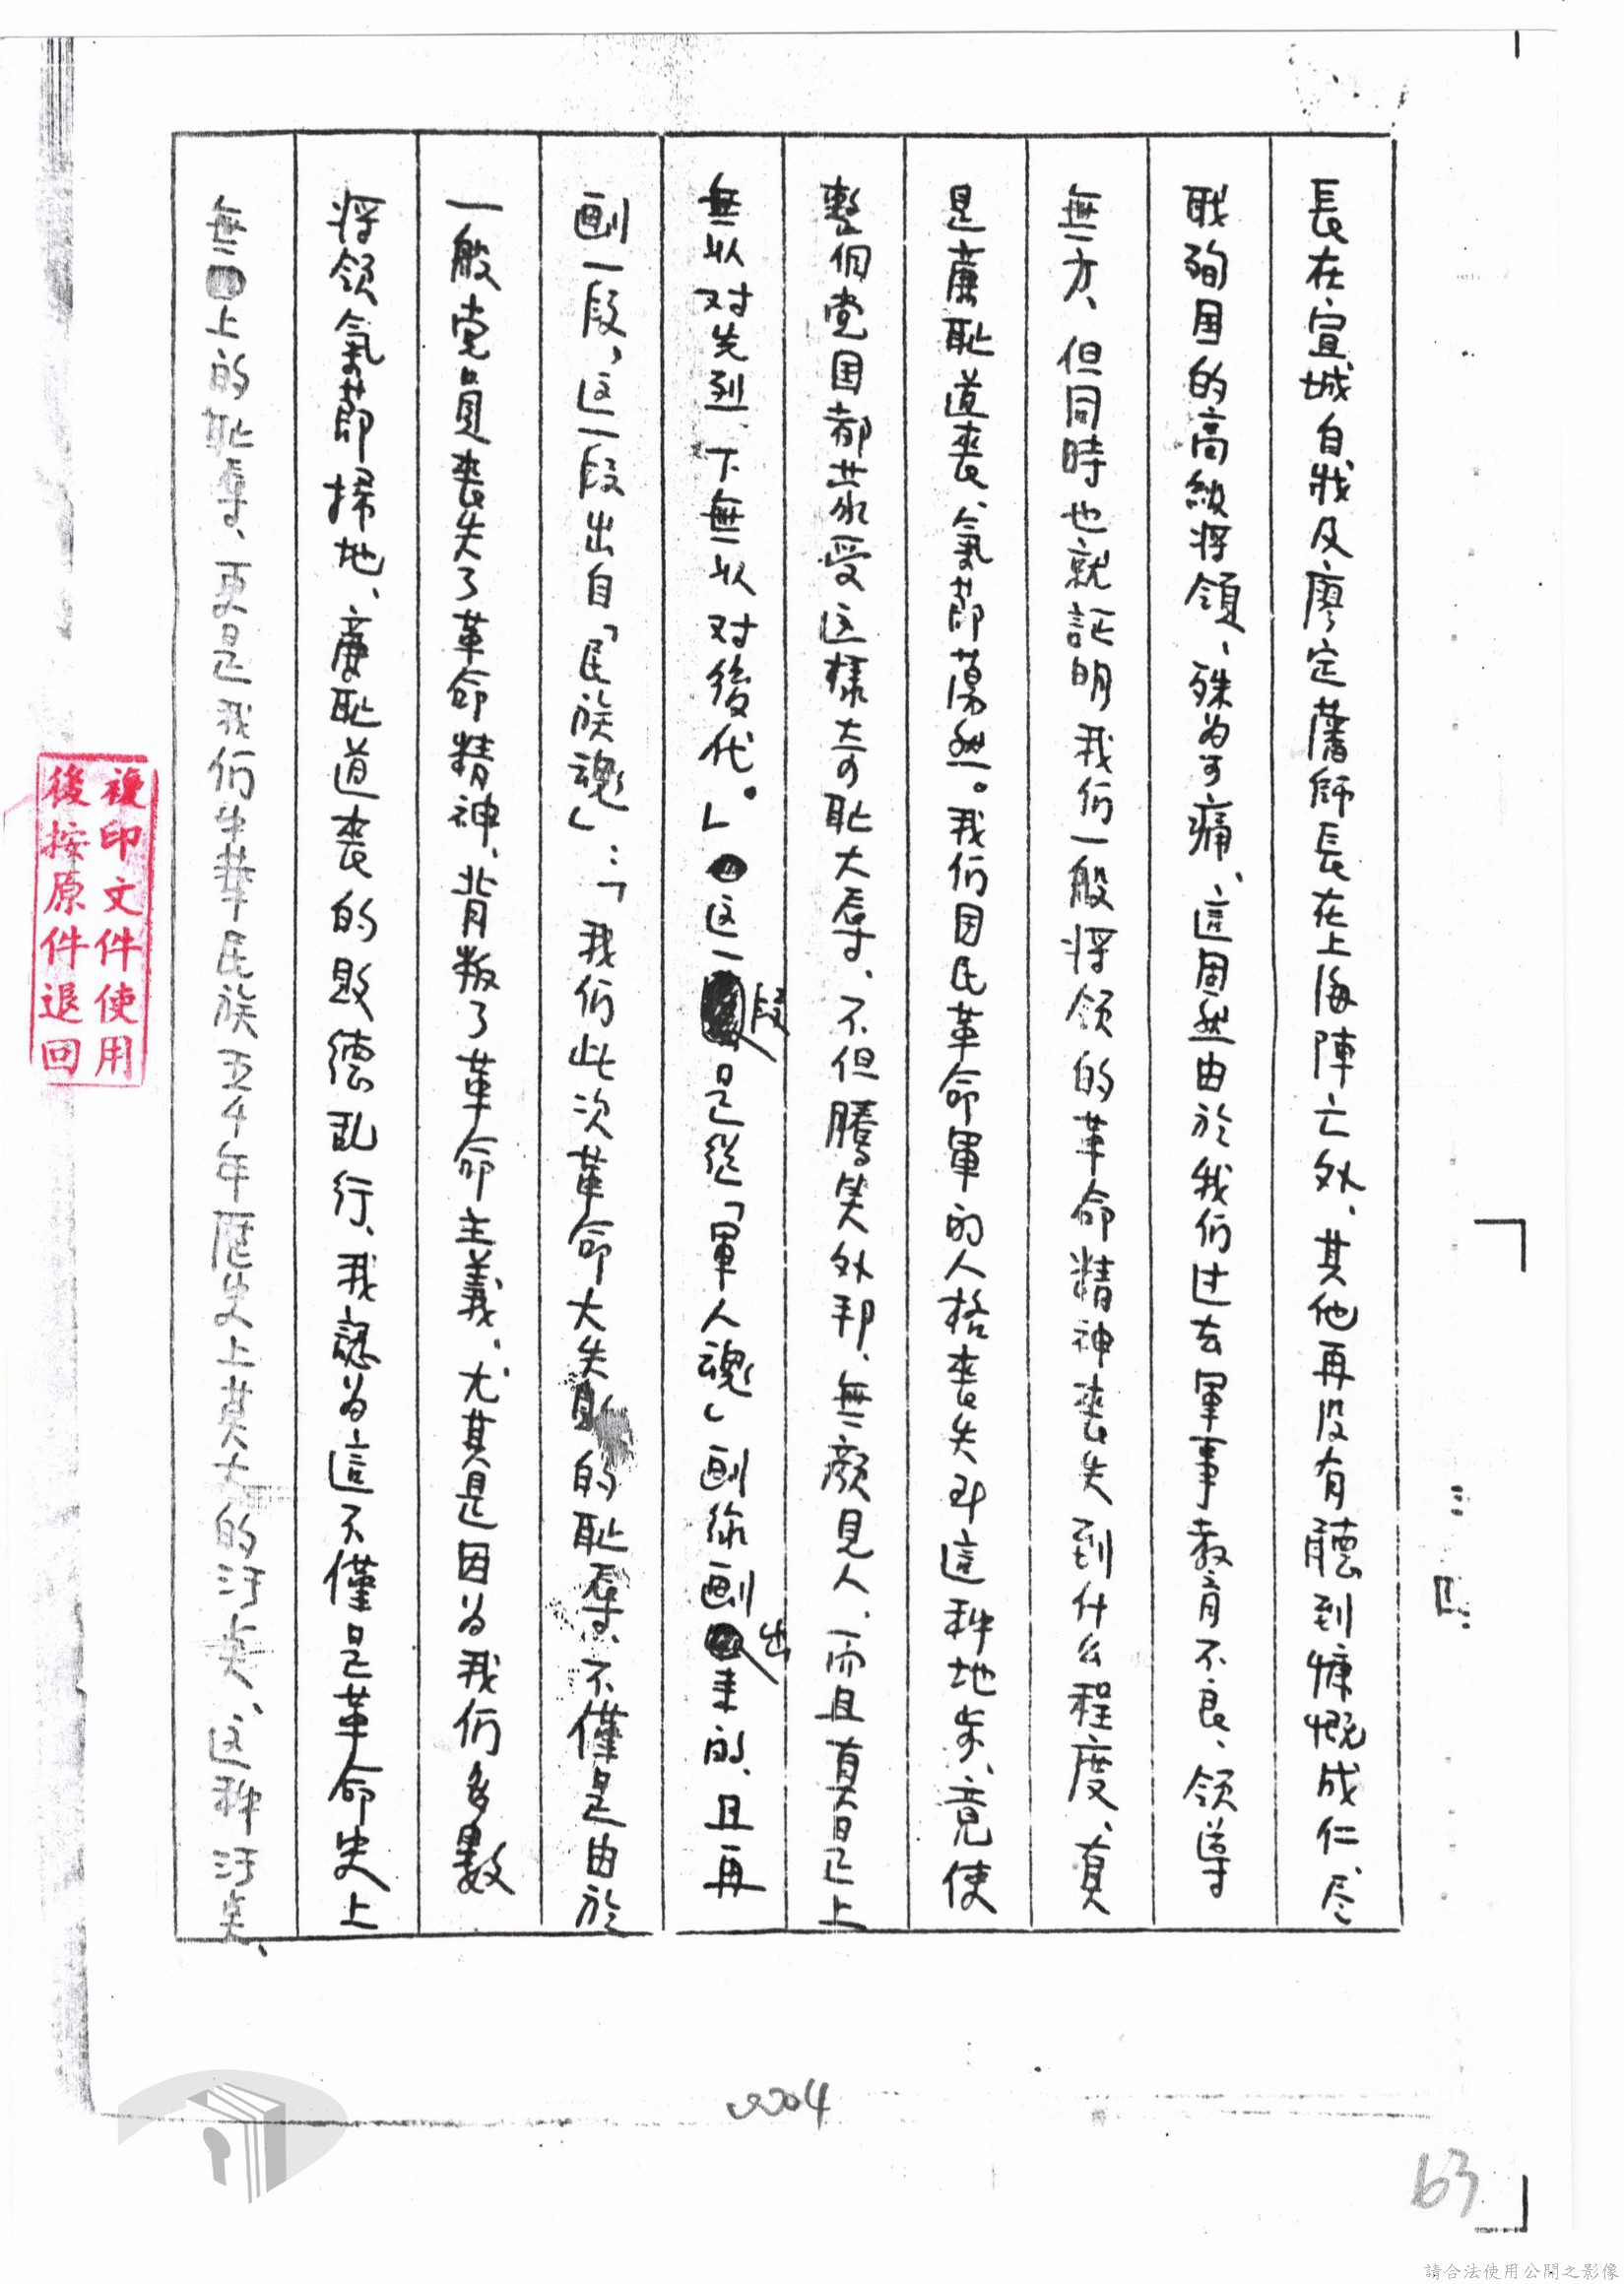 長在宣城自戕及廖定藩師長在上海陣亡外、其他再没有聽到慷慨成仁、尽
职殉国的高級将领、殊为可痛、這固然由於我们过去軍事教育不良、领導
無方、但同時也就証明我们一般将领的革命精神丧失到什么程度、真
是廉恥道丧、氣節蕩然。我们国民革命軍的人格丧失到這种地步、竟使
整個党国都蒙受这樣奇恥大辱、不但騰笑外邦、無颜見人、而且真是上
無以对先烈、下無以对後代。」这一段是從「軍人魂」劃線劃出来的、且再
劃一段、这一段出自「民族魂」：「我们此次革命大失敗的恥辱、不僅是由於
一般党員丧失了革命精神、背叛了革命主義、尤其是因为我们多數
将领氣節掃地、廉恥道丧的敗德乱行、我認为這不僅是革命史上
無上的恥辱、更是我们中華民族五千年歷史上莫大的污点、这种污点、
複印文件使用
後按原件退回
0004
63
請合法使用公開之影像